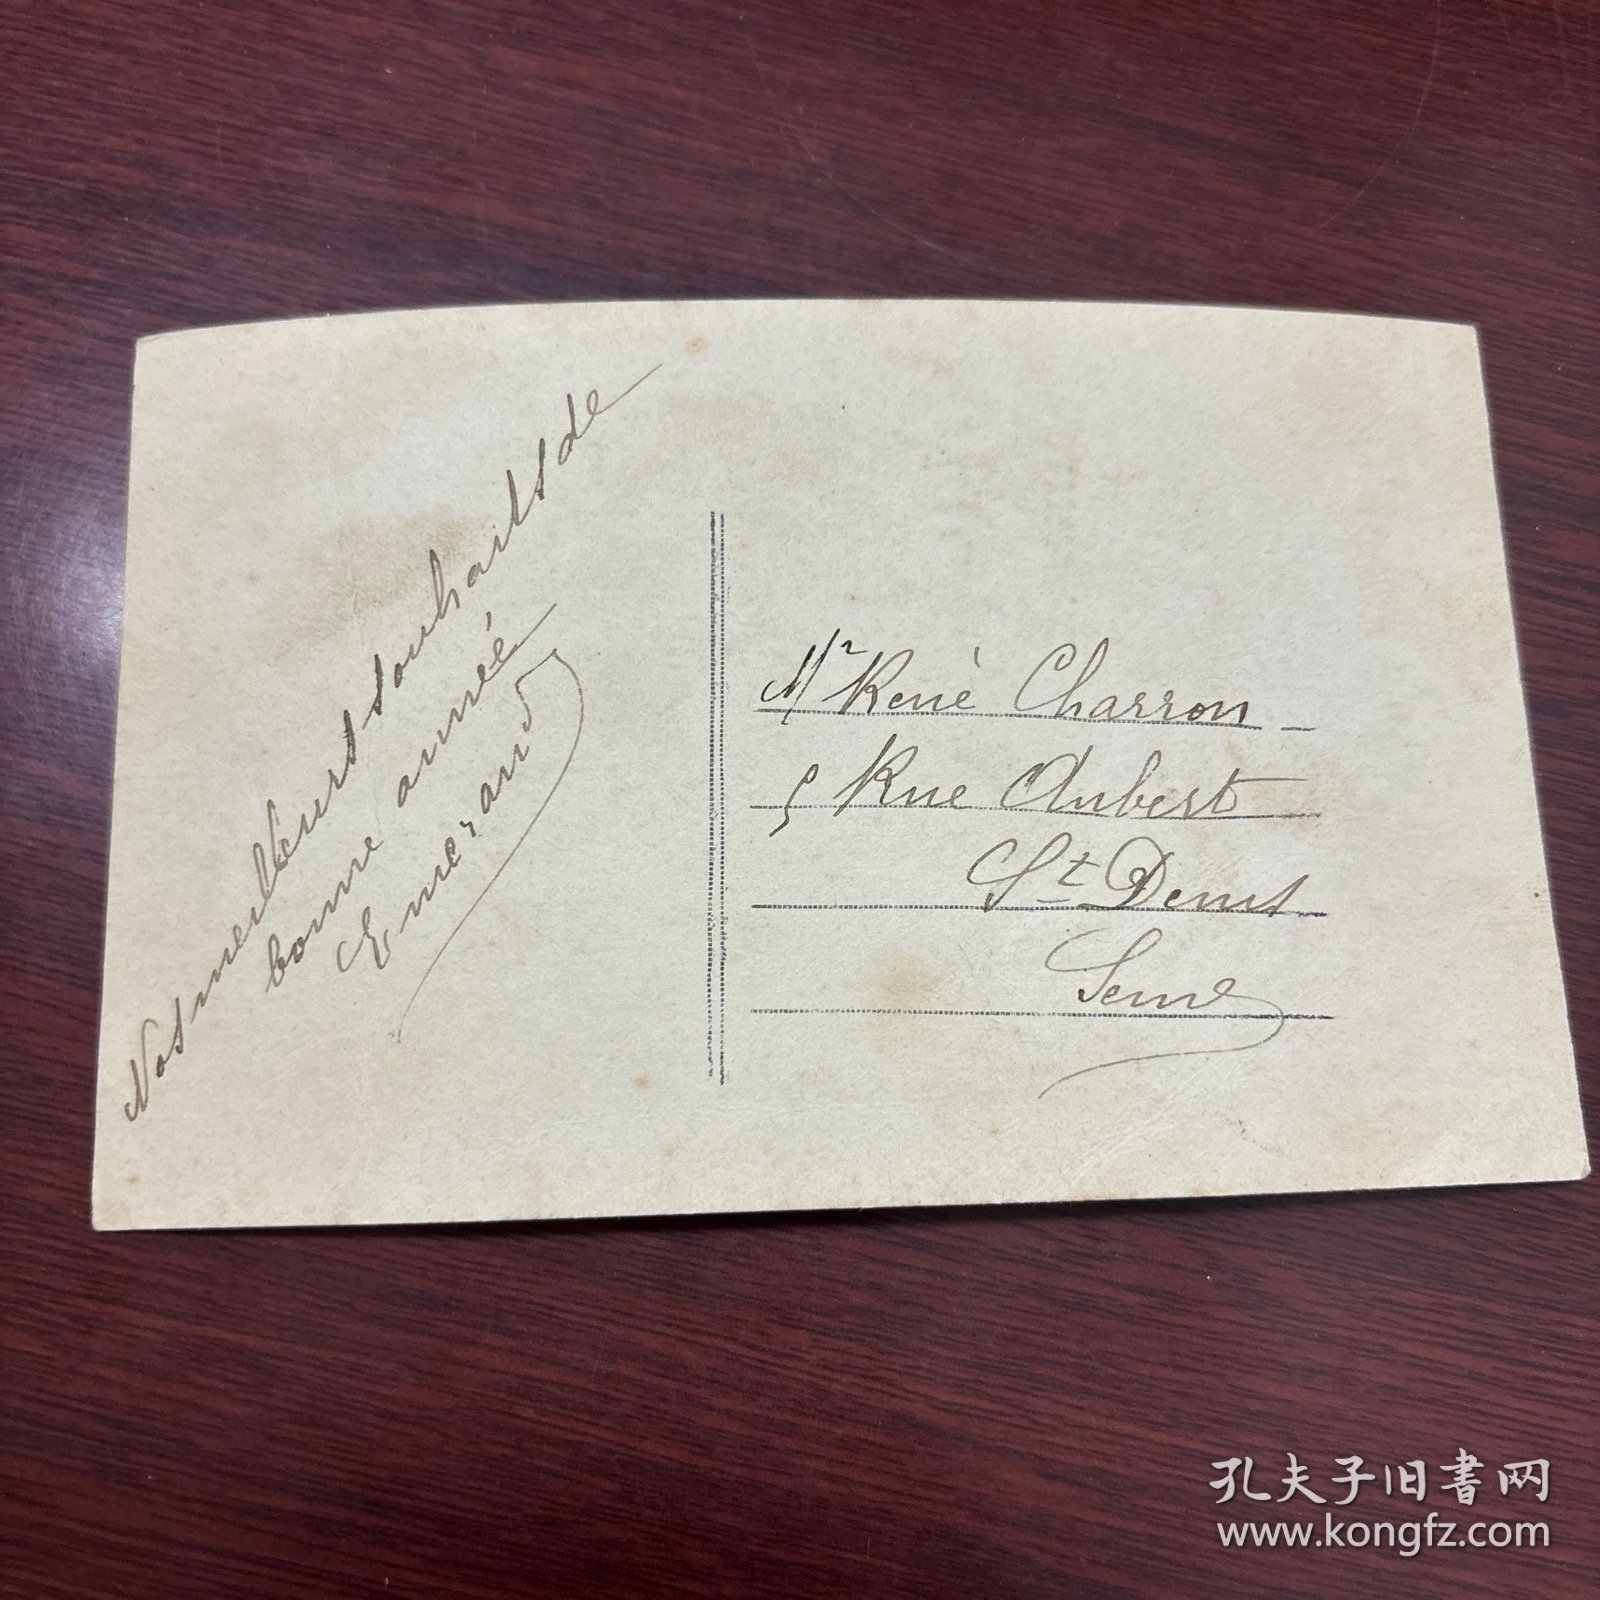 Nos meilleurs souhaits de
bonne année
Emerand
Mr René Charron
5 Rue Aubert
St Denis
Seine
孔夫子旧书网
www.kongfz.com